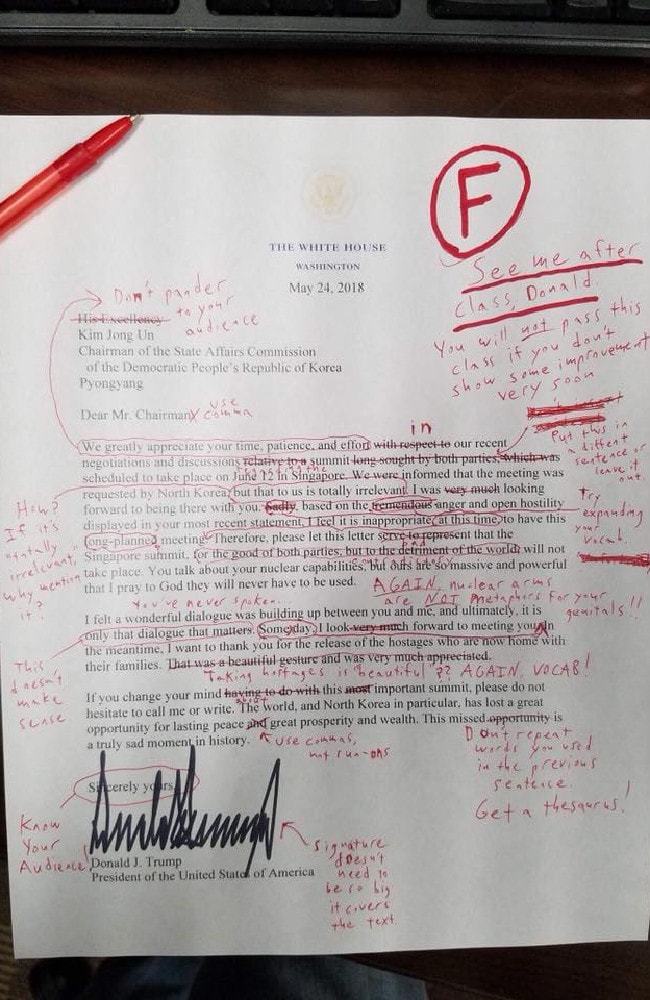 F
See me after
class, Donald.
You will not pass this
class if you don't
show some improvement
very soon
THE WHITE HOUSE
WASHINGTON
May 24, 2018
Don't pander
to your
audience
His Excellency
Kim Jong Un
Chairman of the State Affairs Commission
of the Democratic People's Republic of Korea
Pyongyang
Dear Mr. Chairman
use
comma
in
We greatly appreciate your time, patience, and effort with respect to our recent
negotiations and discussions relative to a summit long sought by both parties, which was
scheduled to take place on June 12 in Singapore. We were informed that the meeting was
requested by North Korea, but that to us is totally irrelevant. I was very much looking
forward to being there with you. Sadly, based on the tremendous anger and open hostility
displayed in your most recent statement, I feel it is inappropriate, at this time, to have this
long-planned meeting. Therefore, please let this letter serve to represent that the
Singapore summit, for the good of both parties, but to the detriment of the world, will not
take place. You talk about your nuclear capabilities, but ours are so massive and powerful
that I pray to God they will never have to be used.
Put this in
a diffent
sentence or
leave it
out
Try
expanding
your
vocab.
How?
If it's
"totally
irrelevant,"
why mention
it?
AGAIN, nuclear arms
are NOT metaphors for your
genitals!!
You've never spoken...
I felt a wonderful dialogue was building up between you and me, and ultimately, it is
only that dialogue that matters. Some day, I look very much forward to meeting you. In
the meantime, I want to thank you for the release of the hostages who are now home with
their families. That was a beautiful gesture and was very much appreciated.
This
doesn't
make
sense
Taking hostages is beautiful?? AGAIN, VOCAB!
If you change your mind having to do with this most important summit, please do not
about
hesitate to call me or write. The world, and North Korea in particular, has lost a great
opportunity for lasting peace and great prosperity and wealth. This missed opportunity is
a truly sad moment in history.
use commas,
not run-ons
Don't repeat
words you used
in the previous
sentence.
Get a thesaurus!
Sincerely yours,
Know
Your
Audience!
Donald J. Trump
President of the United States of America
signature
doesn't
need to
be so big
it covers
the text